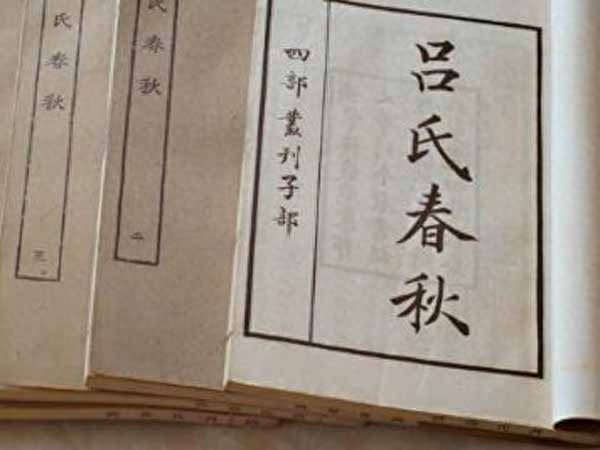 吕氏春秋
四部叢刊子部
氏春秋
二
氏春秋
三